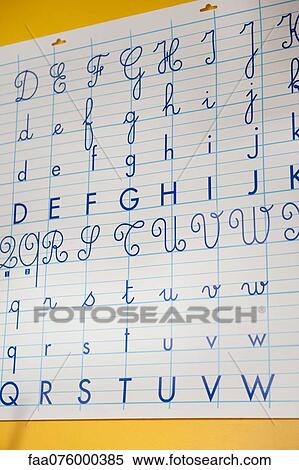 D E F G H I J K
d e f g h i j k
d e f g h i j k
D E F G H I J K
Q R S T U V W
q r s t u v w
q r s t u v w
Q R S T U V W
FOTOSEARCH
faa076000385 www.fotosearch.com